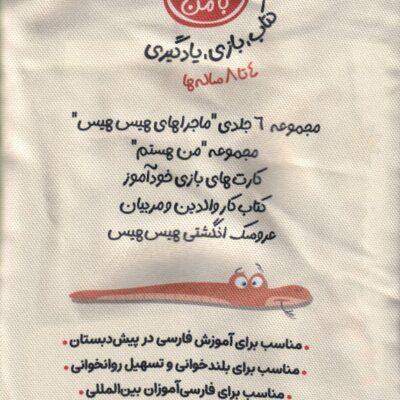 با من
کتاب، بازی، یادگیری
٤ تا ٨ ساله‌ها
مجموعه ٦ جلدی "ماجراهای هیس هیس"
مجموعه "من هستم"
کارت‌های بازی خودآموز
کتاب کار والدین و مربیان
عروسک انگشتی هیس هیس
• مناسب برای آموزش فارسی در پیش‌دبستان •
• مناسب برای بلندخوانی و تسهیل روانخوانی •
• مناسب برای فارسی‌آموزان بین‌المللی •